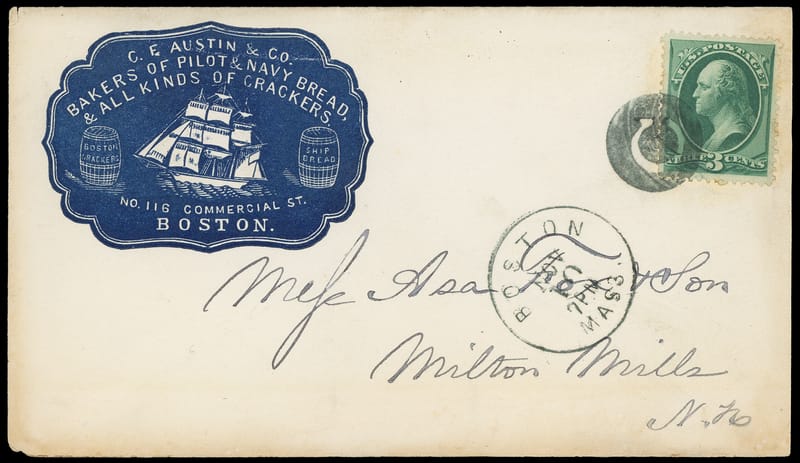 C. E. AUSTIN & CO.
BAKERS OF PILOT & NAVY BREAD,
& ALL KINDS OF CRACKERS.
BOSTON
CRACKERS
SHIP
BREAD
NO. 116 COMMERCIAL ST.
BOSTON.
U.S. POSTAGE
3 CENTS
BOSTON
7 PM
MASS.
Mess Asa & Son
Milton Mills
N. H.